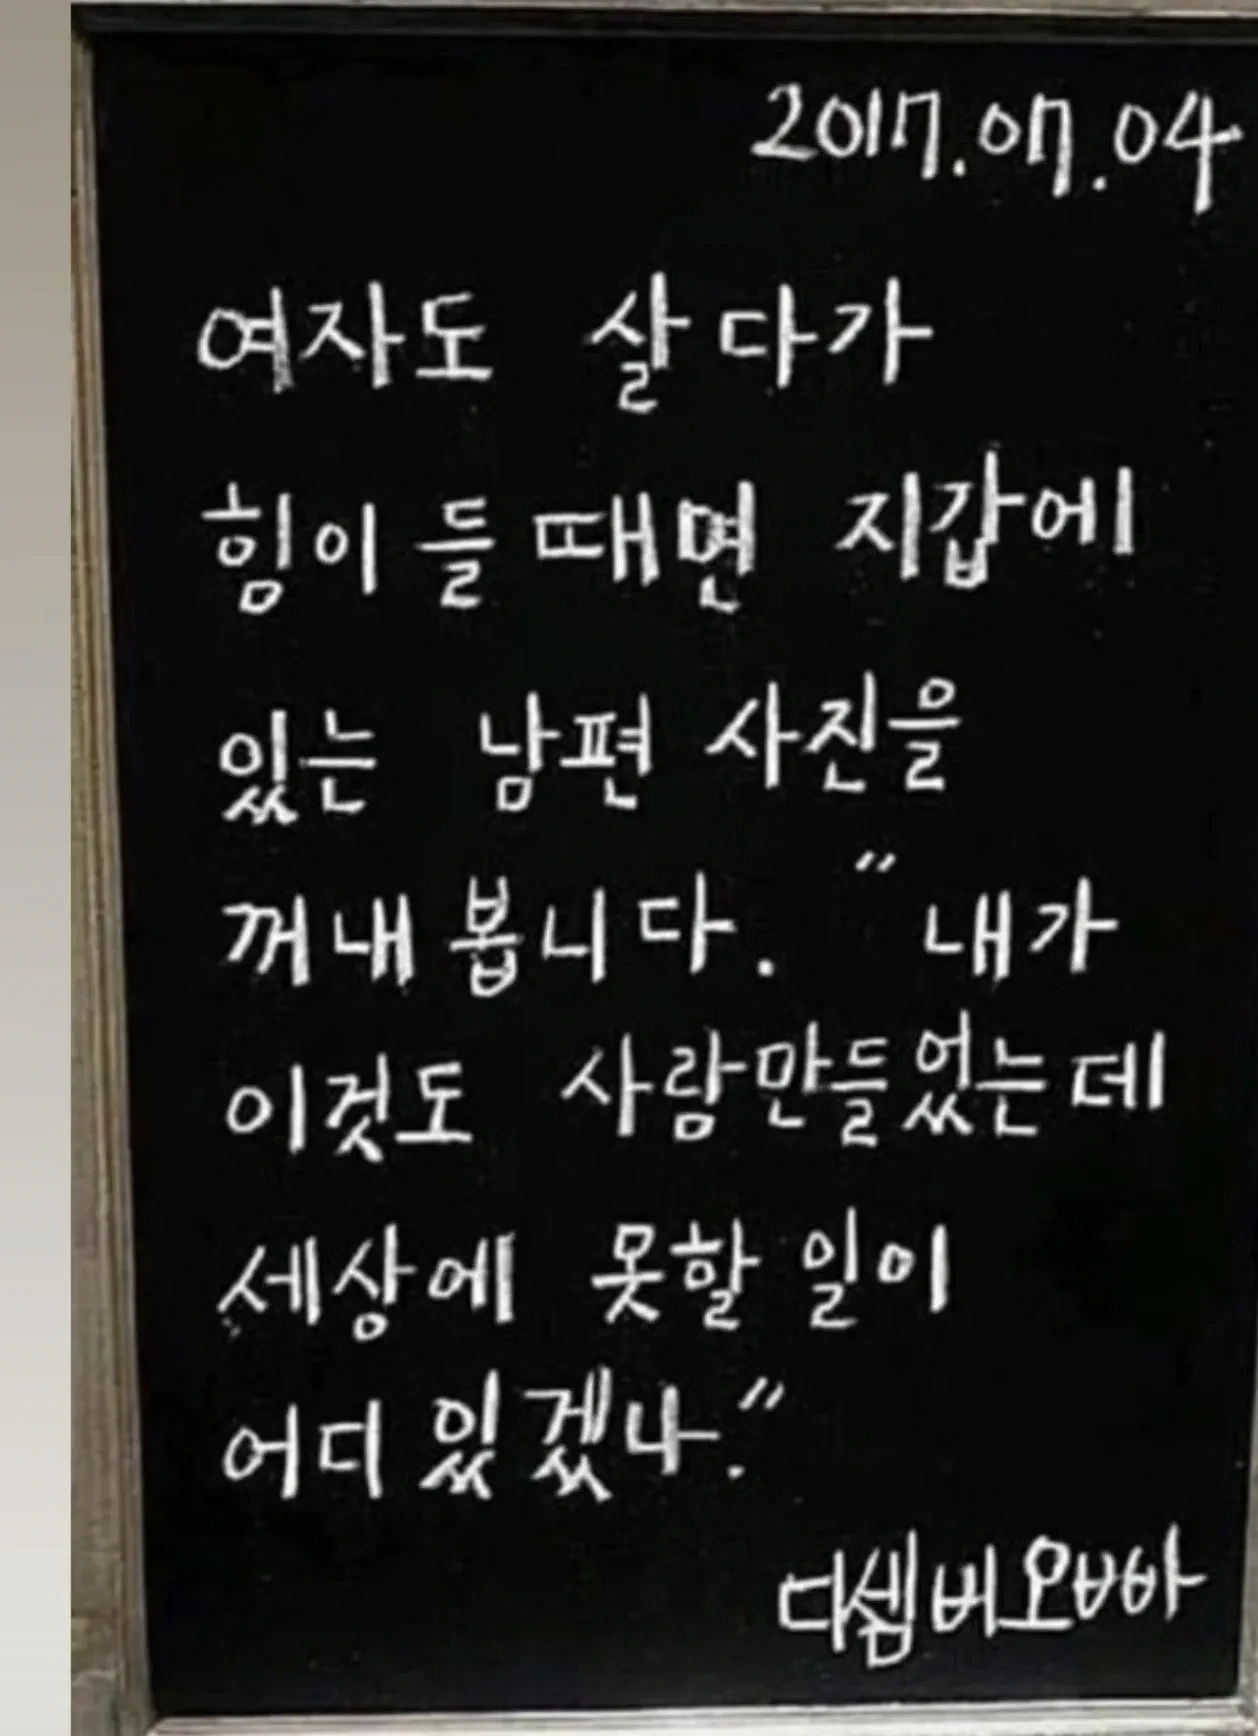 2017.07.04
여자도 살다가
힘이 들때면 지갑에
있는 남편 사진을
꺼내봅니다. "내가
이것도 사람만들었는데
세상에 못할 일이
어디 있겠나."
디셈버오빠